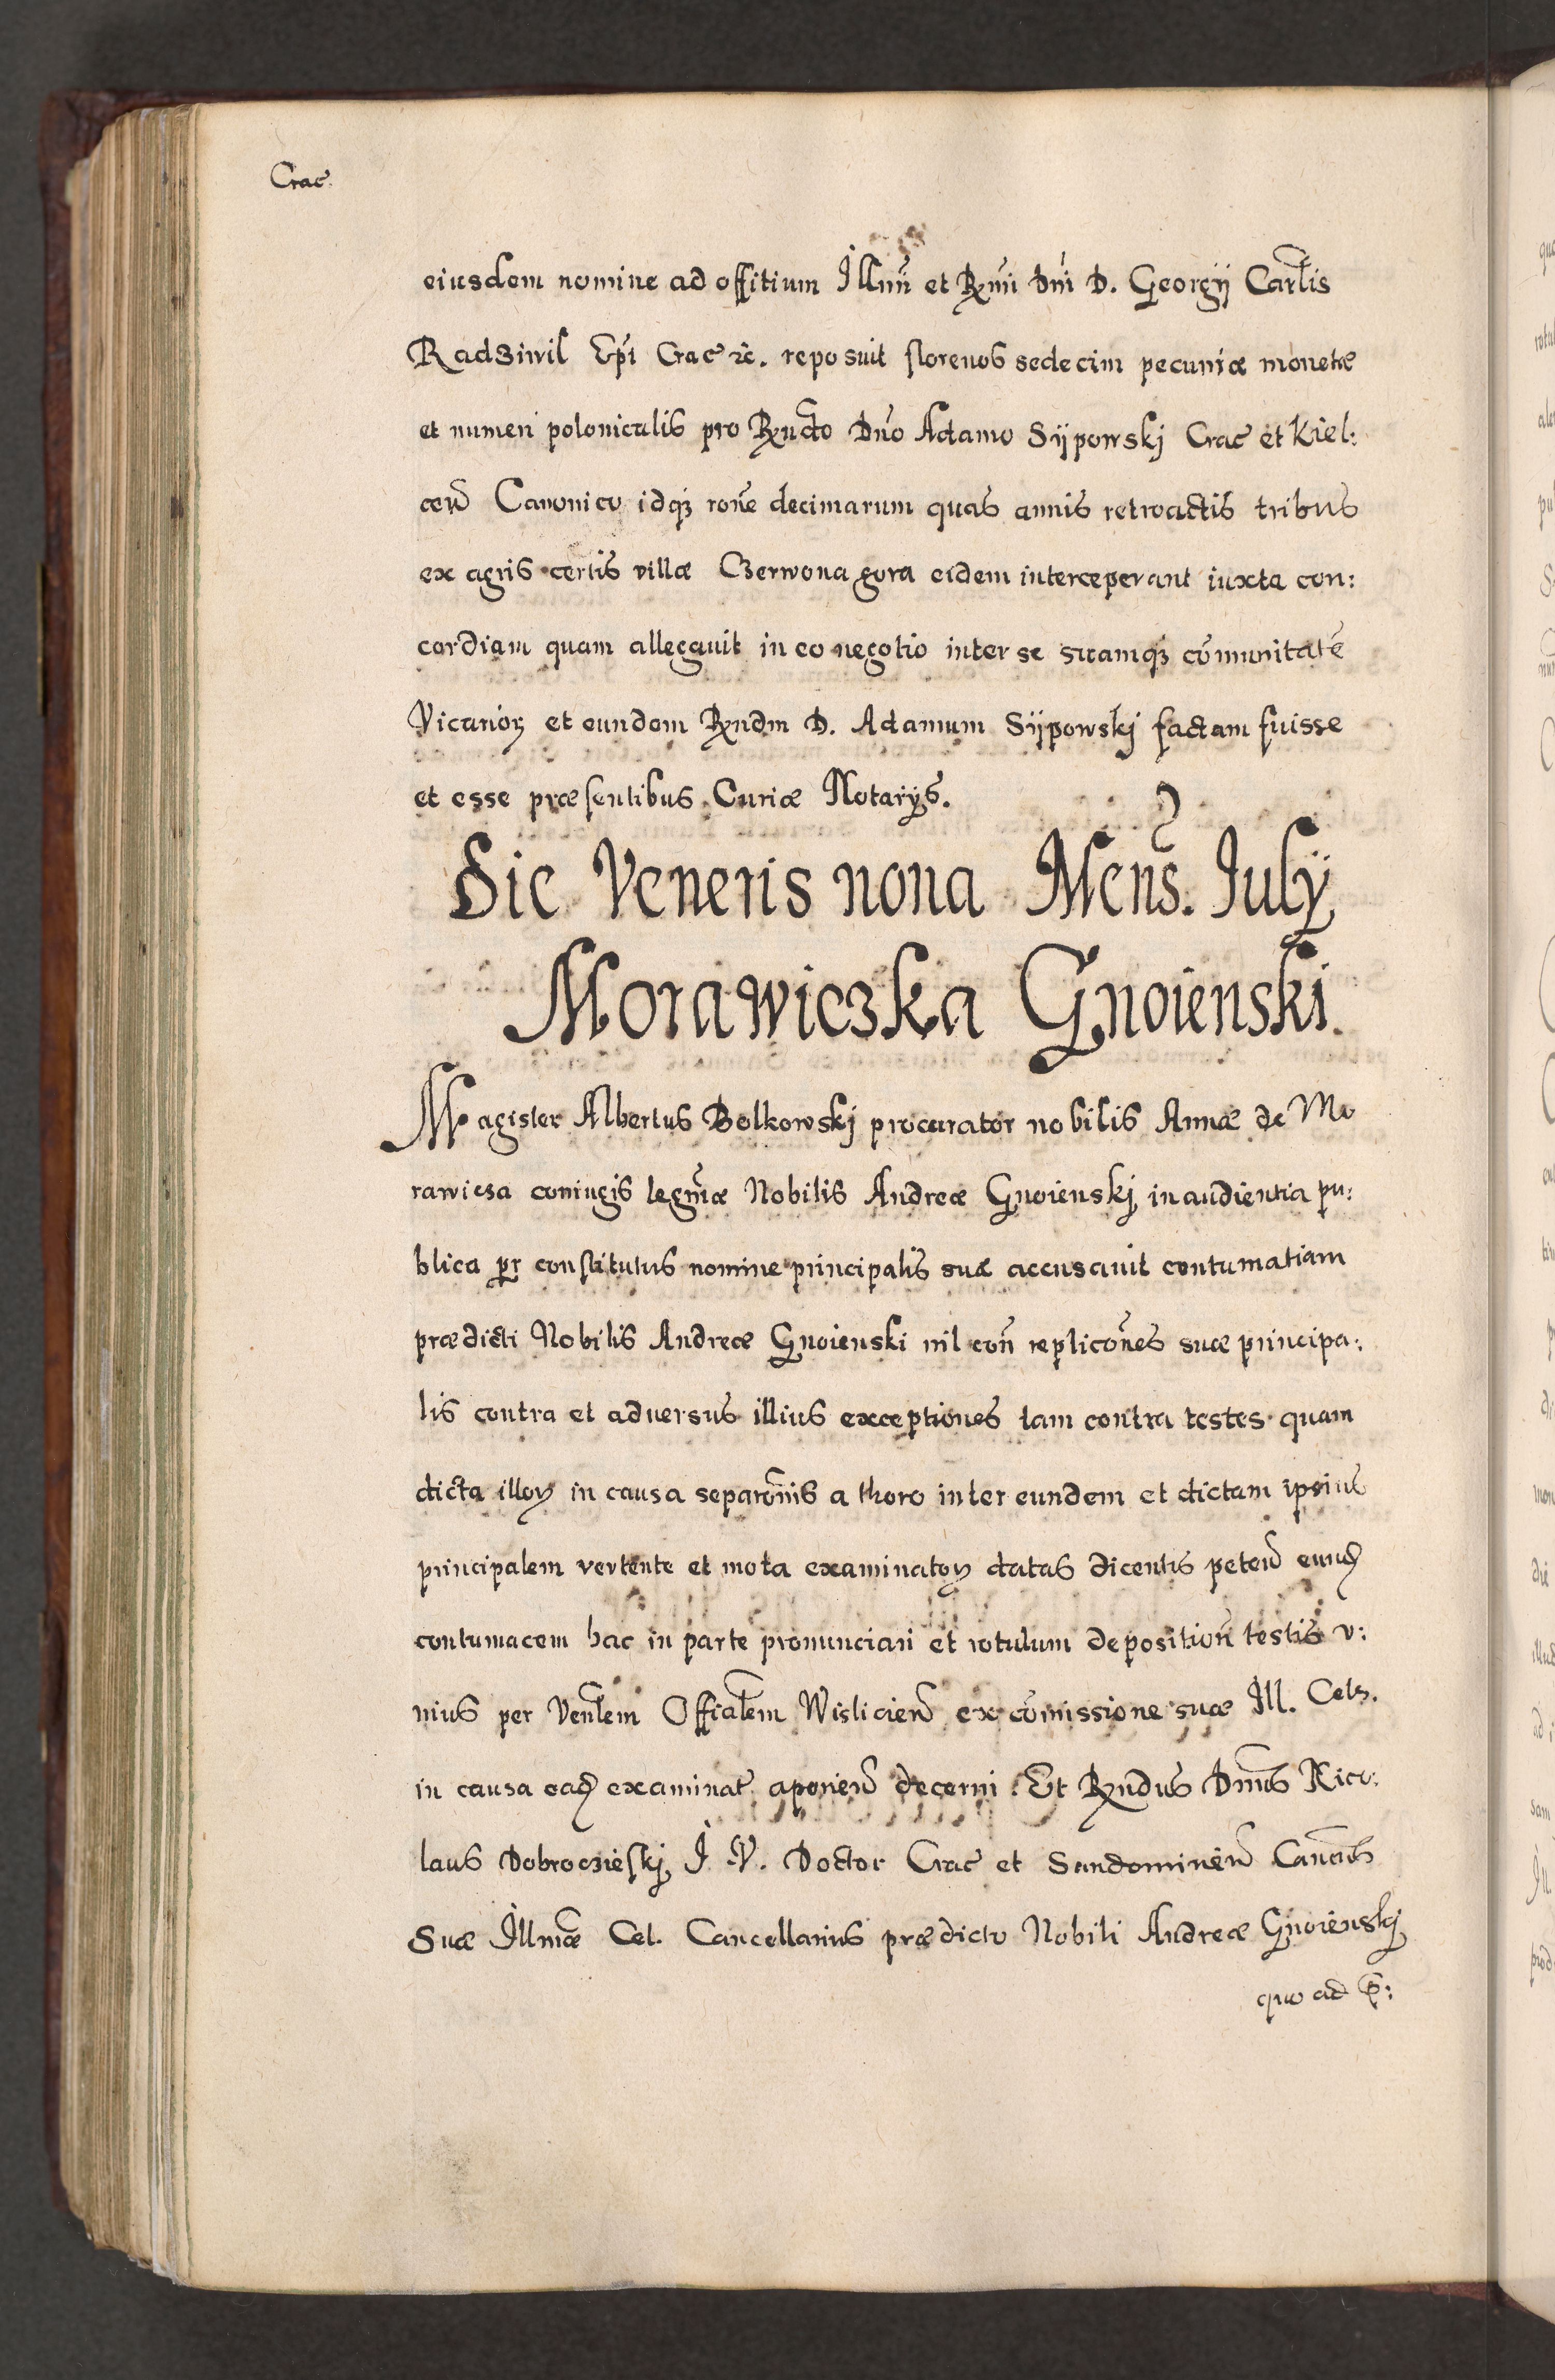 Crac.
eiusdem nomine ad offitium Illmi et Rmi Dni D. Georgij Carlis
Radziwil Epi Crac etc. reposuit florenos sedecim pecuniæ monetæ
et numeri polonicalis pro Rndo Dno Adamo Sÿpowskj Crac et Kiel:
cen Canonico idq₃ rone decimarum quas annis retroactis tribus
ex agris certis villæ Czerwona gora eidem interceperant iuxta con:
cordiam quam allegavit in eo negotio inter se suamq₃ comunitatē
Vicarioꝝ et eundem Rndm D. Adamum Sÿpowskj factam fuisse
et esse præsentibus Curiæ Notarijs.
Die Veneris nona Mens. Julÿ
Morawiczka Gnoienski.
Magister Albertus Bolkowskj procurator nobilis Annæ de Mo
rawicza coniugis legmæ Nobilis Andreæ Gnoienskj in audientia pu:
blica pr constitutus nomine principalis suæ accusavit contumatiam
prædicti Nobilis Andreæ Gnoienski nil con replicones suæ principa:
lis contra et adversus illius exceptiones tam contra testes quam
dicta illoꝝ in causa separonis a thoro inter eundem et dictam ipsius
principalem vertente et mota examinatoꝝ datas dicentis peten eund
contumacem hac in parte pronunciari et rotulum deposition testis v:
nius per Venlem Officialem Wislicien ex comissione suæ Ill. Cels.
in causa ead examinat aperien decerni. Et Rndus Dnus Nico:
laus Dobrocieskj I. V. Doctor Crac et Sandomirien Cancus
Suæ Illmæ Cel. Cancellarius prædicto Nobili Andreæ Gnoienskj
quo ad p: